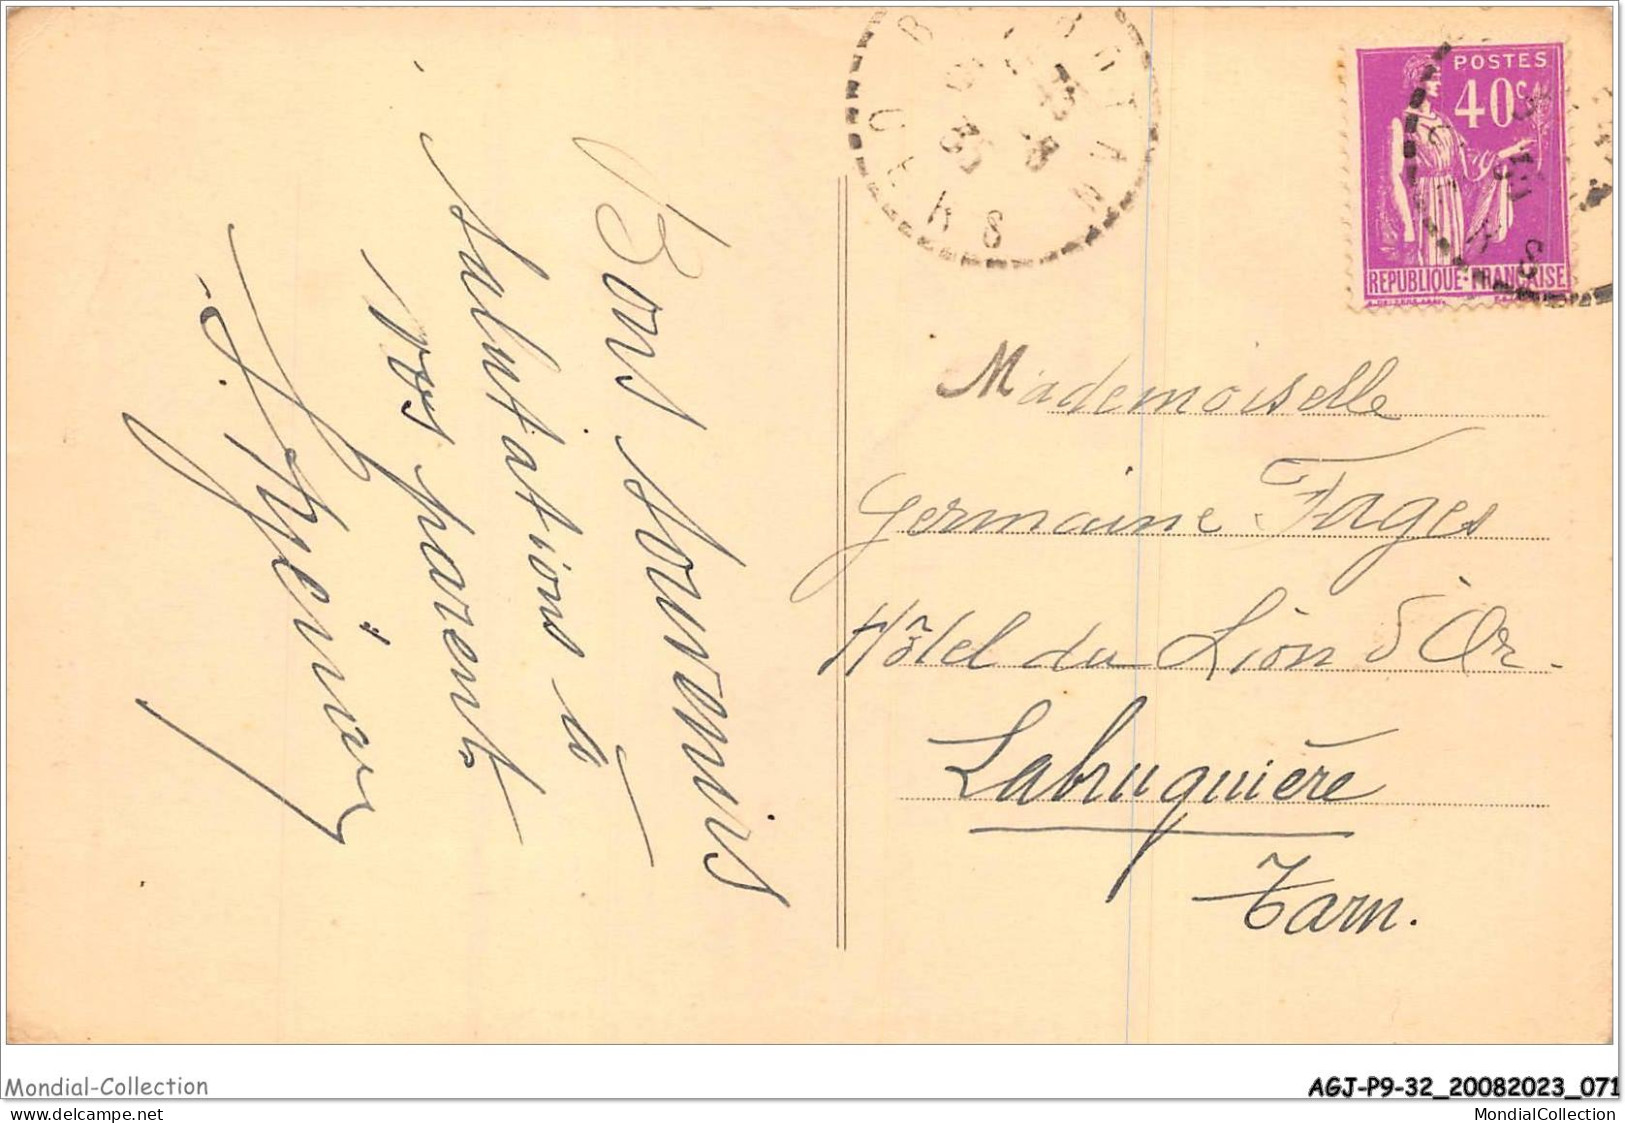 Bons souvenirs
salutations à
vos parents
POSTES
40c
REPUBLIQUE FRANÇAISE
Mademoiselle
Germaine Fages
Hôtel du Lion d'Or
Labruguière
Tarn.
Mondial-Collection
AGJ-P9-32_20082023_071
delcampe.net
MondialCollection